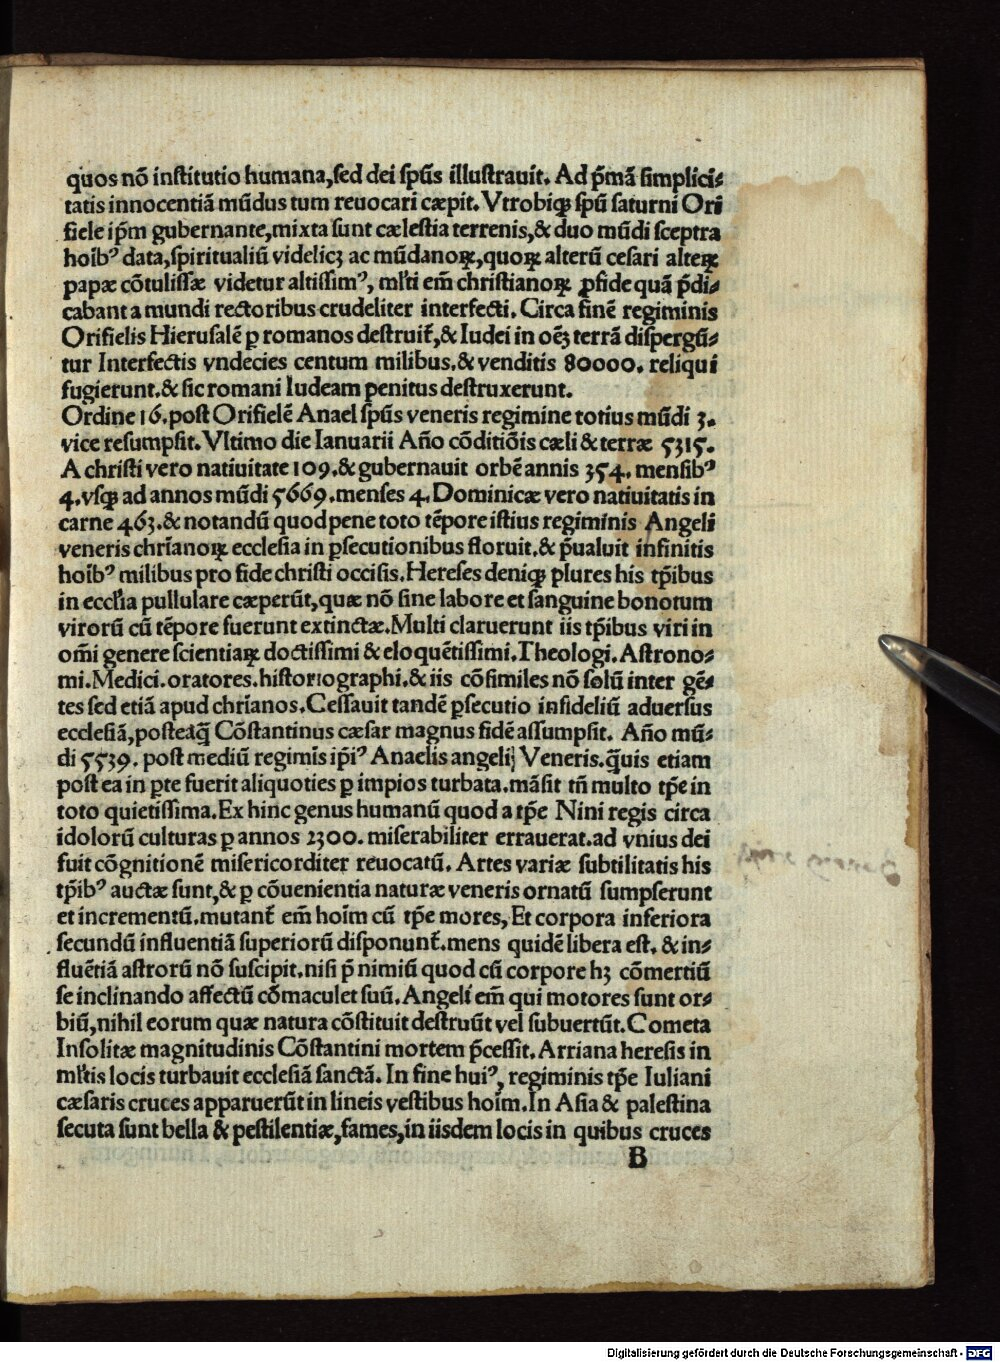 quos nō institutio humana, sed dei spūs illustravit. Ad p̄mā simplici⸗
tatis innocentiā mūdus tum reuocari cæpit. Vtrobiqꝫ spū saturni Ori
fiele ip̄m gubernante, mixta sunt cælestia terrenis, & duo mūdi sceptra
hoībꝰ data, spiritualiū videlicꝫ ac mūdanoꝝ, quoꝝ alterū cesari alteꝝ
papæ cōtulissæ videtur altissimꝰ, mĺti em̄ christianoꝝ ꝓ fide quā p̄di⸗
cabant a mundi rectoribus crudeliter interfecti. Circa finē regiminis
Orifielis Hierusalē ꝑ romanos destruit̄, & Iudei in oēꝫ terrā dispergū⸗
tur Interfectis vndecies centum milibus. & venditis 80000. reliqui
fugierunt. & sic romani Iudeam penitus destruxerunt.
Ordine 16. post Orifielē Anael spūs veneris regimine totius mūdi 3.
vice resumpsit. Vltimo die Ianuarii Año cōditiōis cæli & terræ 5315.
A christi vero natiuitate 109. & gubernauit orbē annis 354. mensibꝰ
4. vsqꝫ ad annos mūdi 5669. menses 4. Dominicæ vero natiuitatis in
carne 463. & notandū quod pene toto tēpore istius regiminis Angeli
veneris chrīanoꝝ ecclesia in ꝑsecutionibus floruit. & p̄ualuit infinitis
hoībꝰ milibus pro fide christi occisis. Hereses deniqꝫ plures his tp̄ibus
in eccĺia pullulare cæperūt, quæ nō sine labore et sanguine bonotum
virorū cū tēpore fuerunt extinctæ. Multi claruerunt iis tp̄ibus viri in
om̄i genere scientiaꝝ doctissimi & eloquētissimi. Theologi. Astrono⸗
mi. Medici. oratores. historiographi. & iis cōsimiles nō solū inter gē⸗
tes sed etiā apud chrīanos. Cessauit tandē ꝑsecutio infideliū aduersus
ecclesiā, posteaq̄ Cōstantinus cæsar magnus fidē assumpsit. Año mū⸗
di 5539. post mediū regimīs ip̄iꝰ Anaelis angelij Veneris. q̄uis etiam
post ea in ꝑte fuerit aliquoties ꝑ impios turbata. māsit tñ multo tp̄e in
toto quietissima. Ex hinc genus humanū quod a tp̄e Nini regis circa
idolorū culturas ꝑ annos 2300. miserabiliter errauerat. ad vnius dei
fuit cōgnitionē misericorditer reuocatū. Artes variæ subtilitatis his
tp̄ibꝰ auctæ sunt, & ꝑ cōuenientia naturæ veneris ornatū sumpserunt
et incrementū. mutant̄ em̄ hoīm cū tp̄e mores, Et corpora inferiora
secundū influentiā superiorū disponunt̄. mens quidē libera est. & in⸗
fluētiā astrorū nō suscipit. nisi p̄ nimiū quod cū corpore hꝫ cōmertiū
se inclinando affectū cōmaculet suū. Angeli em̄ qui motores sunt or⸗
biū, nihil eorum quæ natura cōstituit destruūt vel subuertūt. Cometa
Insolitæ magnitudinis Cōstantini mortem p̄cessit. Arriana heresis in
mĺtis locis turbauit ecclesiā sanctā. In fine huiꝰ, regiminis tp̄e Iuliani
cæsaris cruces apparuerūt in lineis vestibus hoīm. In Asia & palestina
secuta sunt bella & pestilentiæ, fames, in iisdem locis in quibus cruces
B
Digitalisierung gefördert durch die Deutsche Forschungsgemeinschaft - DFG